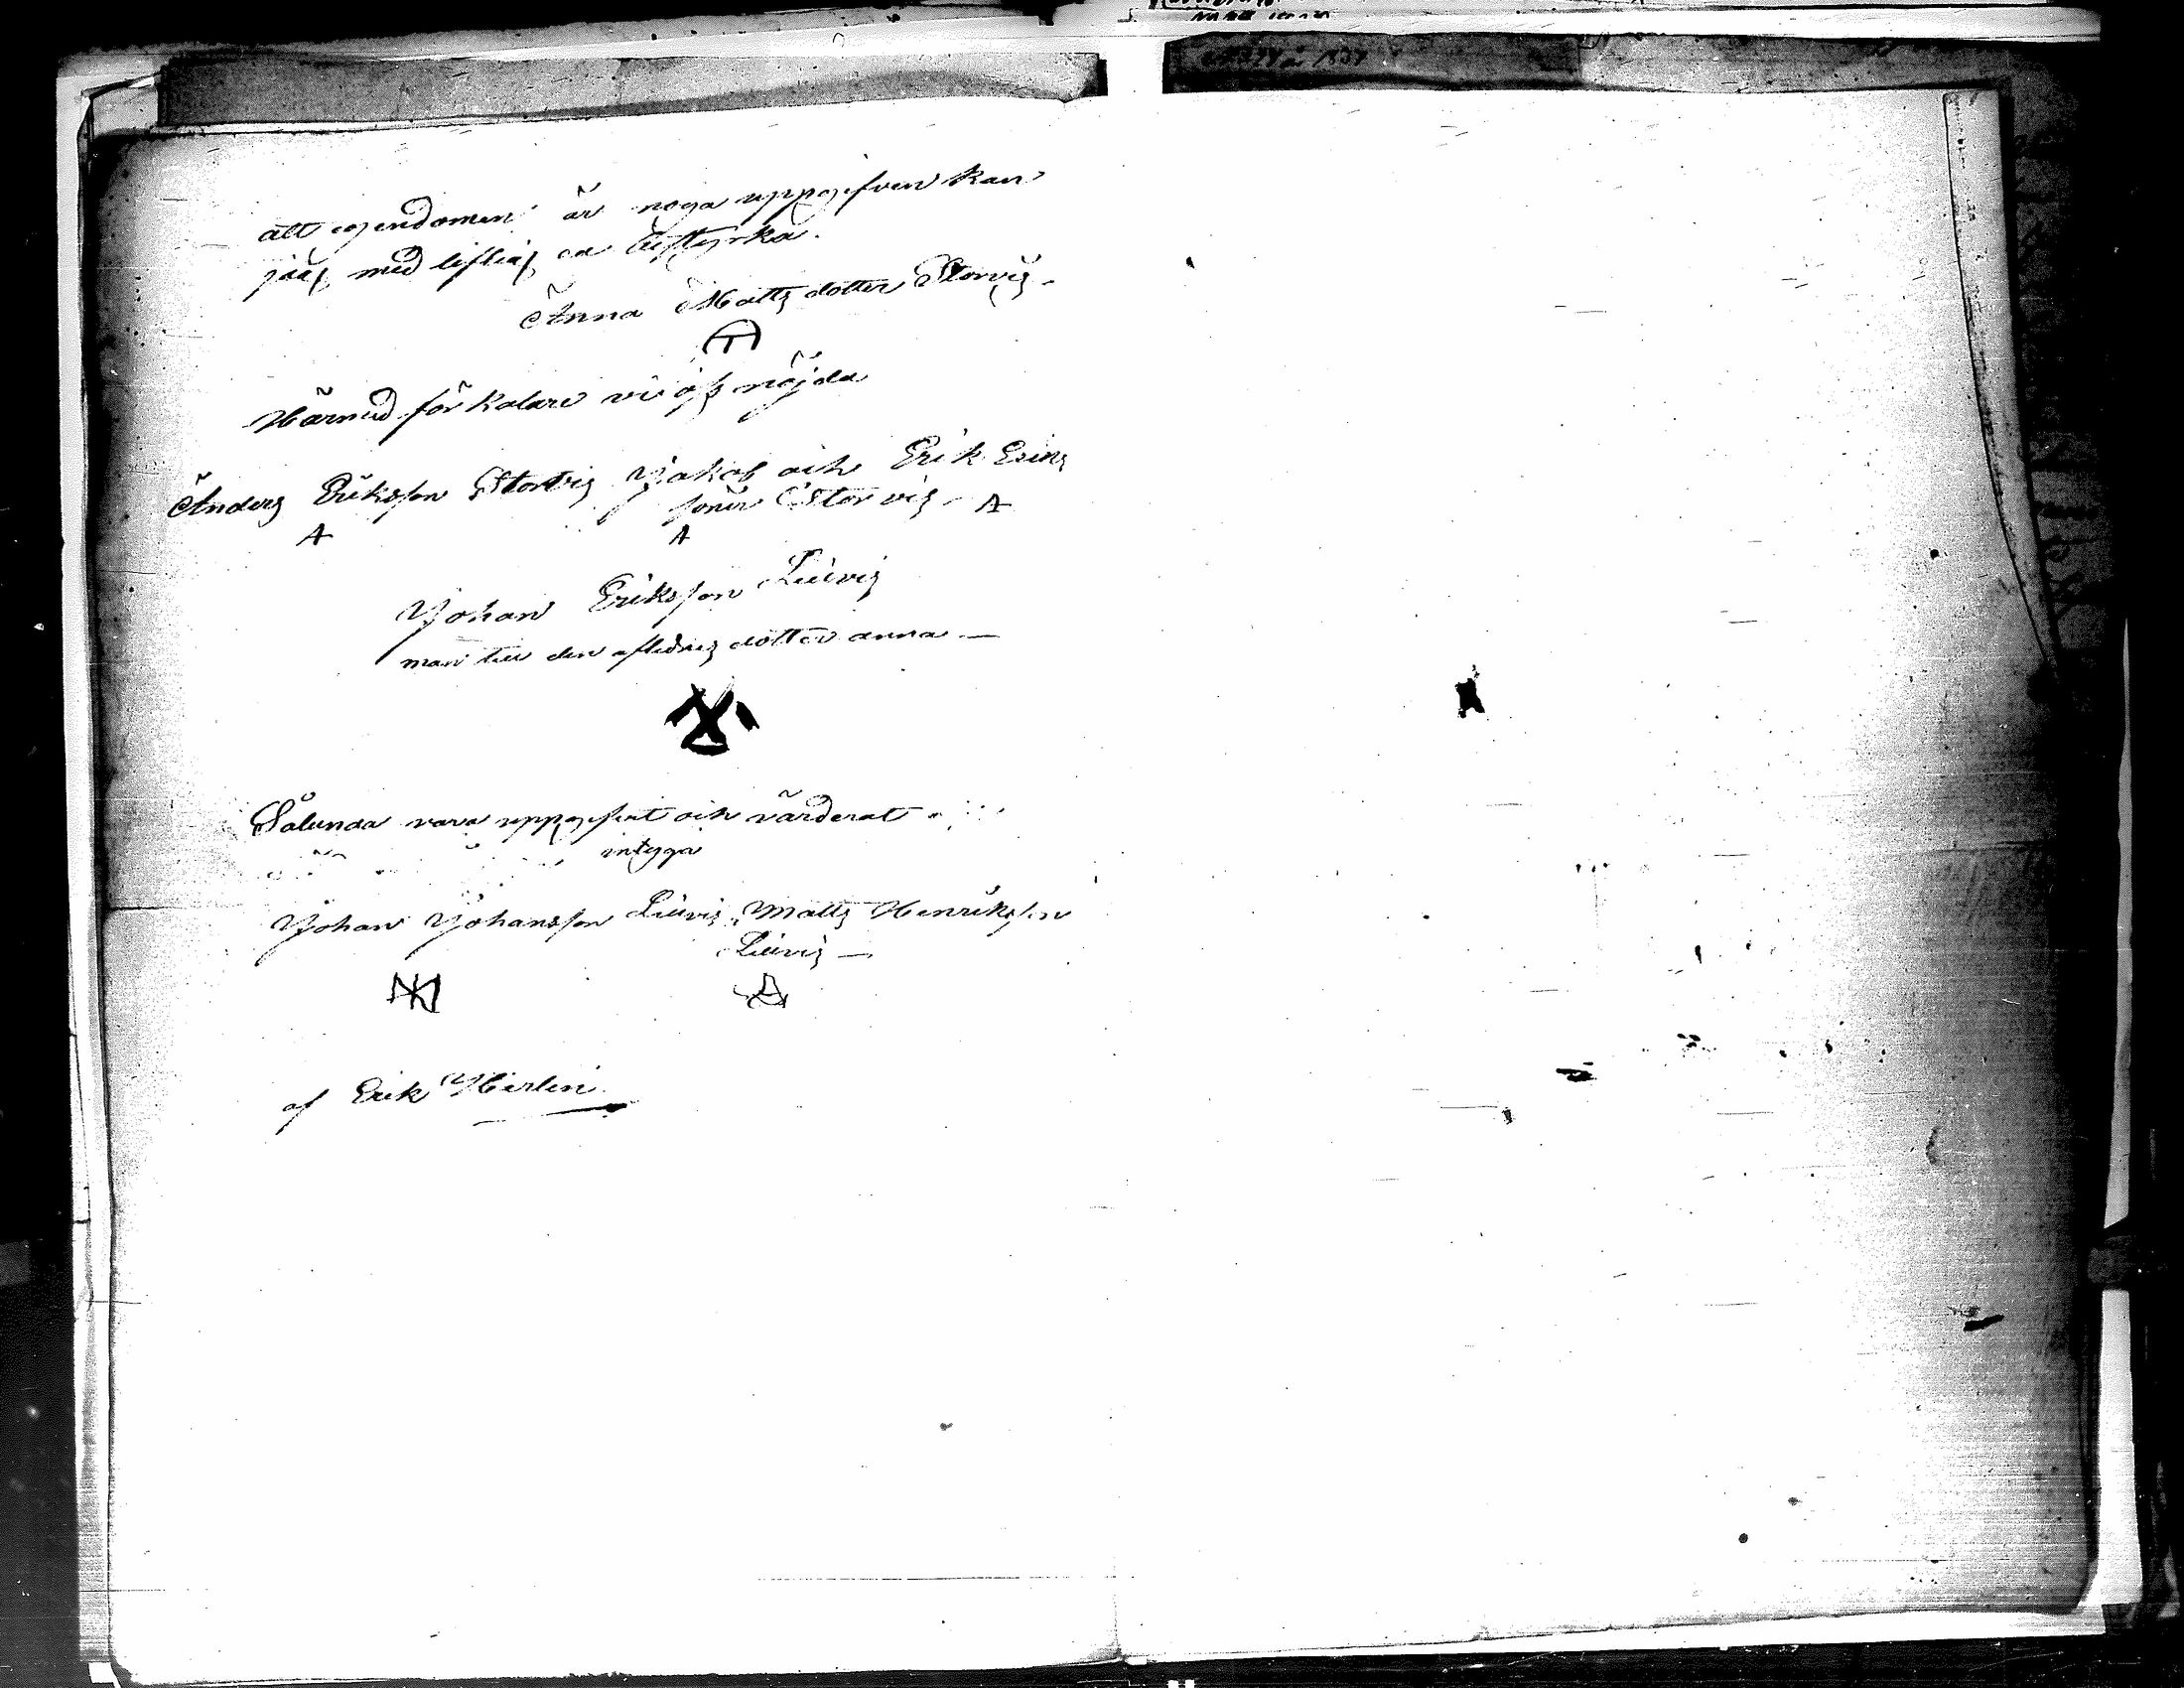 att egendomen är noga uppgifven kan
jag med liflig ed besty̆rka.
Anna Matts dotter Storvis.
Härmed förkalare vi oss nöjda
Anders Eriksson Storvis Jakob och Erik Erics
söner Storvis
Johan Eriksson Liuvis
man till den aflidnes dotter anna —
Sålunda vara uppgifvit och värderat
intyga
Johan Johansson Liuvis, Matts Henriksson
Liuvis —
af Erik Herlin